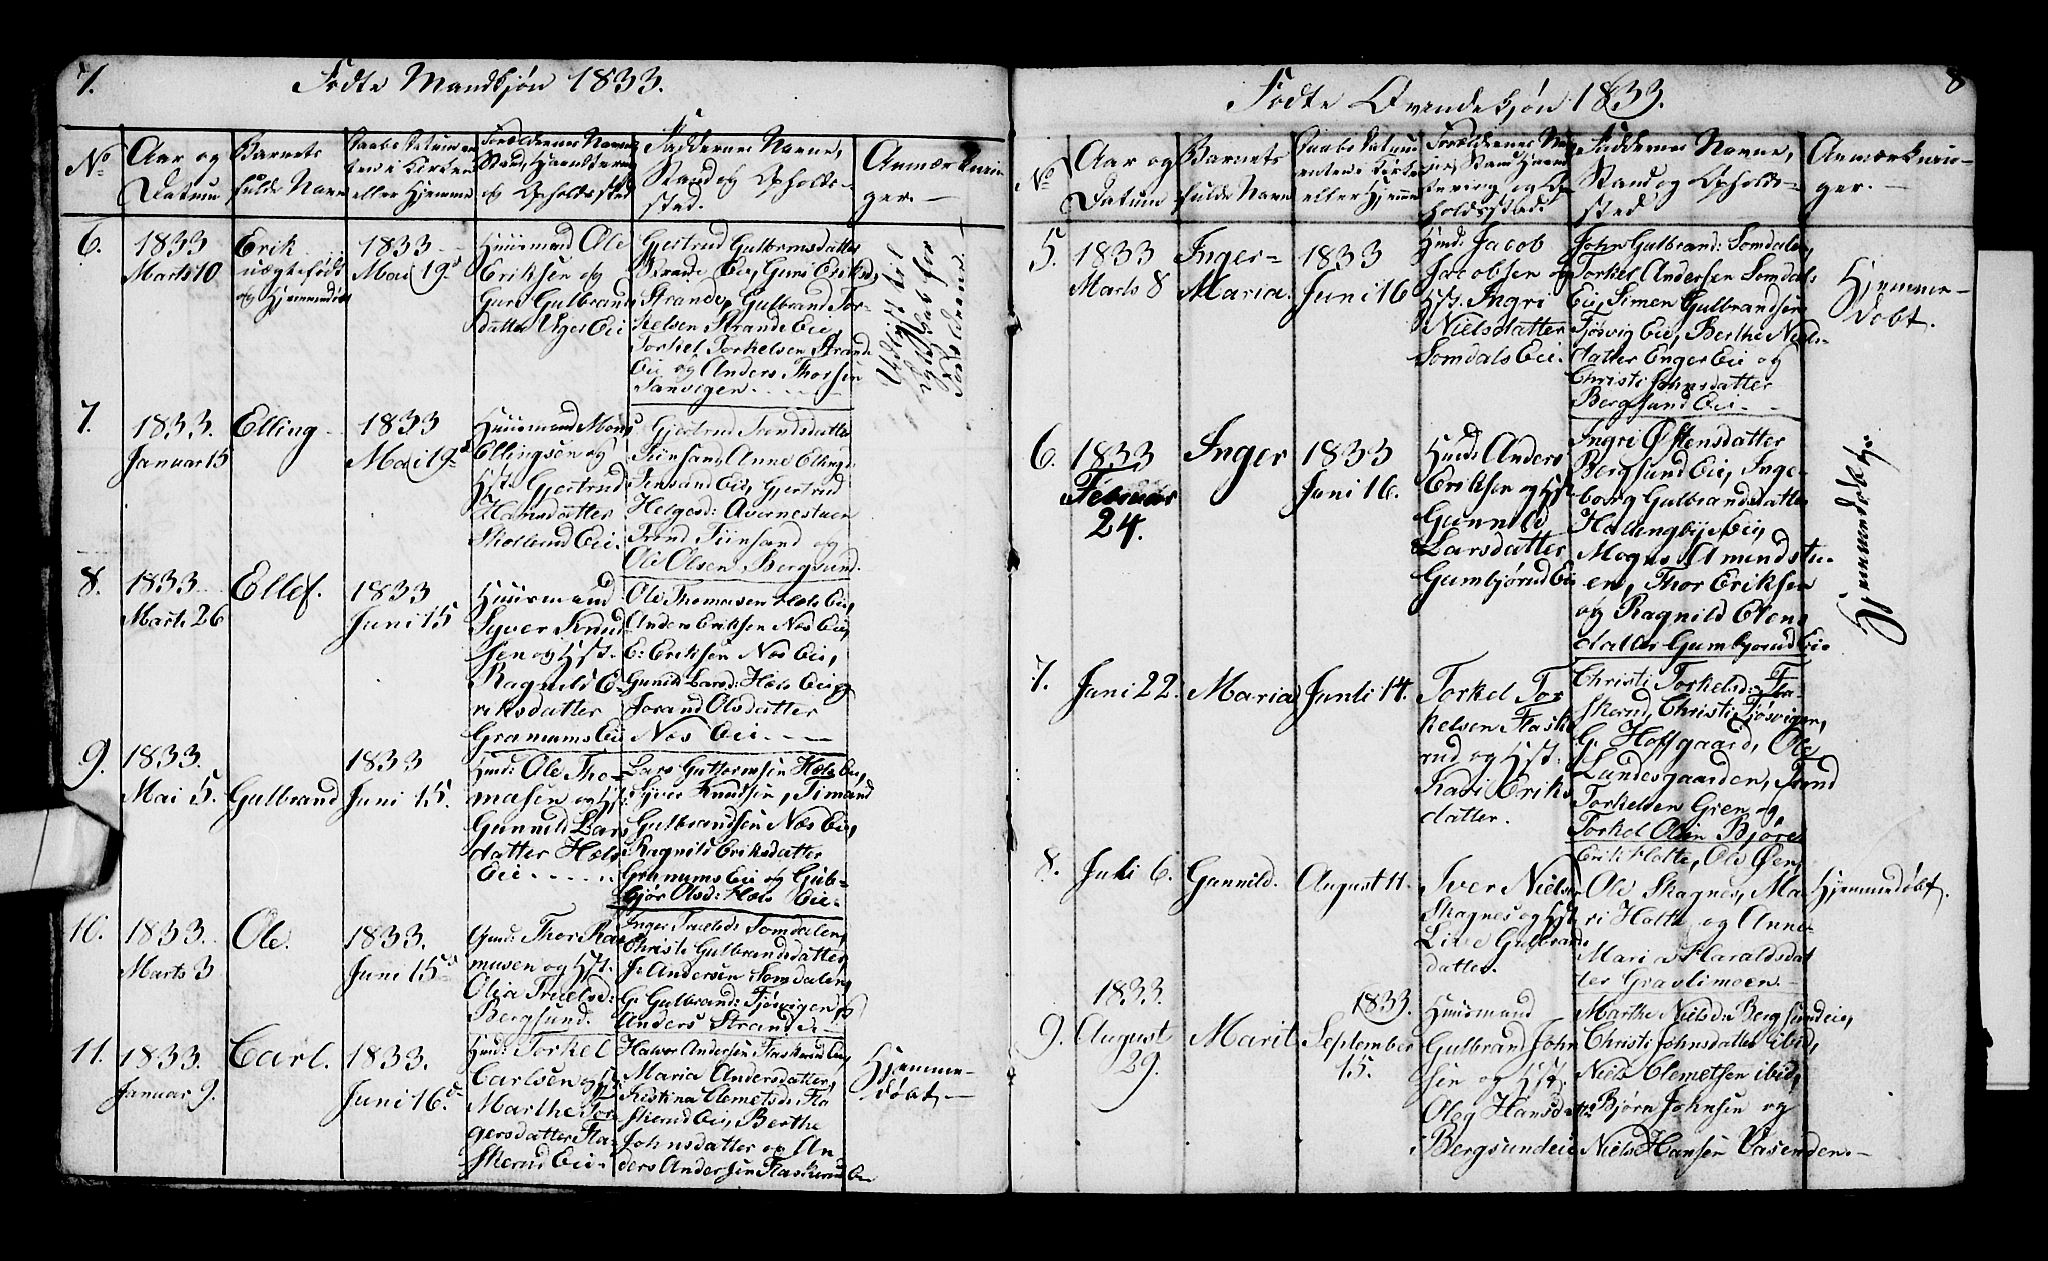 7.
Fødte Mandkjøn 1833.
No
Aar og
Datum
Barnets
fulde Navn
Daabs Datum en
ten i Kirken
eller Hjemme
Forældrenes Navne
Stand, Haandtering
og Opholdssted
Faddernes Navne,
Stand og Opholds-
sted.
Anmærknin-
ger.
6.
1833
Marts 10
Erik
uægtefødt
og Hjemmedøbt
1833
Mai 19d
Huusmand Ole
Eriksen og
Guro Gulbrands
datter Viger Eie
Gjertrud Gulbrandsdatter
Strande Eie, Guri Eriksd.
Strande, Gulbrand Tor-
kelsen Strande Eie,
Torkel Torkelsen Strande
Eie og Anders Thorsen
Sanvigen
til
for
Forældrene
7.
1833.
Januar 15
Elling
1833
Mai 19d
Huusmand Mons
Ellingsen og
Hst. Gjertrud
Hansdatter
Skollerud Eie.
Gjertrud Trondsdatter
Finsand, Anne Ellings
Finsand Eie, Gjertrud
Helgesd: Avernestuen
Trond Finsand og
Ole Olsen Bergsund.
8.
1833
Marts 26
Ellef.
1833
Juni 15
Huusmand
Syver Knud
sen og Hst.
Ragnild E-
riksdatter
Granums Eie
Ole Thomasen Hæls Eie,
Anders Eriksen Næs Eie,
E: Eriksen Næs Eie,
Gunild Larsd: Hæls Eie og
Jorand Olsdatter
Næs Eie
9.
1833.
Mai 5.
Gulbrand
1833
Juni 15.
Huusd: Ole Tho-
masen og Hst:
Gunild Lars
datter Hæls
Eie
Lars Guttormsen Hæls Eie,
Syver Knudsen, Simand
Gulbrandsen Næs Eie,
Ragnild Eriksdatter
Granums Eie og Gub-
bjør Olsd: Hæls Eie.
10.
1833.
Marts 3
Ole.
1833.
Juni 15d
Huusd: Thor Ras
musen og Hst.
Olia Truelsd:
Bergsund.
Inger Truelsd: Somdalen,
Christi Gulbrandsdatter,
J: Andersen Somdalen,
G. Gulbrand: Tjøsvigen og
Anders Strande.
11.
1833.
Januar 9.
Carl.
1833.
Juni 16d
Huusd: Torkel
Carlsen og Hst.
Marthe Tor-
gersdatter Fla-
skerud Eie.
Halvor Andersen Flaskerud Eie,
Maria Andersdatter,
Kistina Clemetsd: Fla
skerud Eie, Berthe
Johnsdatter og An
ders Andersen Flaskerud Eie
Hjemme-
døbt
8
Fødte Qvindekjøn 1833.
No
Aar og
Datum
Barnets
fulde Navn
Daabs Datum
enten i Kirke
eller Hjemme
Forældrenes Na
vne, Stand Haand
tering og Op
holdssted
Faddernes Navne,
Stand og Opholds-
sted
Anmærknin-
ger.
5.
1833
Marts 8
Inger-
Maria.
1833
Juni 16
Huusd: Jacob
Jacobsen og
Hst. Ingri
Nielsdatter
Somdals Eie.
John Gulbrand: Somdalen,
Torkel Andersen Somdals
Eie, Simen Gulbrandsen
Tjøsvig Eie, Berthe Niels-
datter Enger Eie og
Christi Johnsdatter
Bergsund Eie
Hjemme-
døbt.
6.
1833
Februar
24.
Inger
1833
Juni 16.
Huusd: Anders
Eriksen og Hst.
Gunnild
Larsdatter
Gumbjørud Eie
Ingri Østensdatter
Bergsund Eie, Inge-
borg Gulbrandsdatter
Hallingbye Eie,
Mogns Amundstu-
en, Thor Eriksen
og Ragnild Olens
datter Gumbjørud Eie.
Hjemmedøbt.
7.
Juni 22.
Maria
Juuli 14.
Torkel Tor
kelsen Flaske
rud og Hst:
Kari Eriks
datter.
Christi Torkelsd: Fla-
skerud, Christi Tjøsvigen,
G. Hoffgaard, Ole
Lundesgaarden, Trond
Torkelsen Gren og
Torkel Olsen Bjøre
8.
Juli 6.
Gunnild.
August 11.
Iver Niels
Skagnes og Hst
Live Gulbrands
datter.
Erik Hotte, Ole Øen,
Ole Skagnes, Ma-
ri Hotte og Anne
Maria Haraldsdat
ter Gravlimoen.
Hjemmedøbt.
9.
1833.
August
29.
Marit
1833.
September
15.
Huusmand
Gulbrand John
sen og Hst.
Oleg Hansdatter
Bergsundeie
Marthe Nielsd: Bergsundeie,
Christi Johnsdatter ibid,
Niels Clemetsen ibid,
Bjørn Johnsen og
Niels Hansen Vasenden.